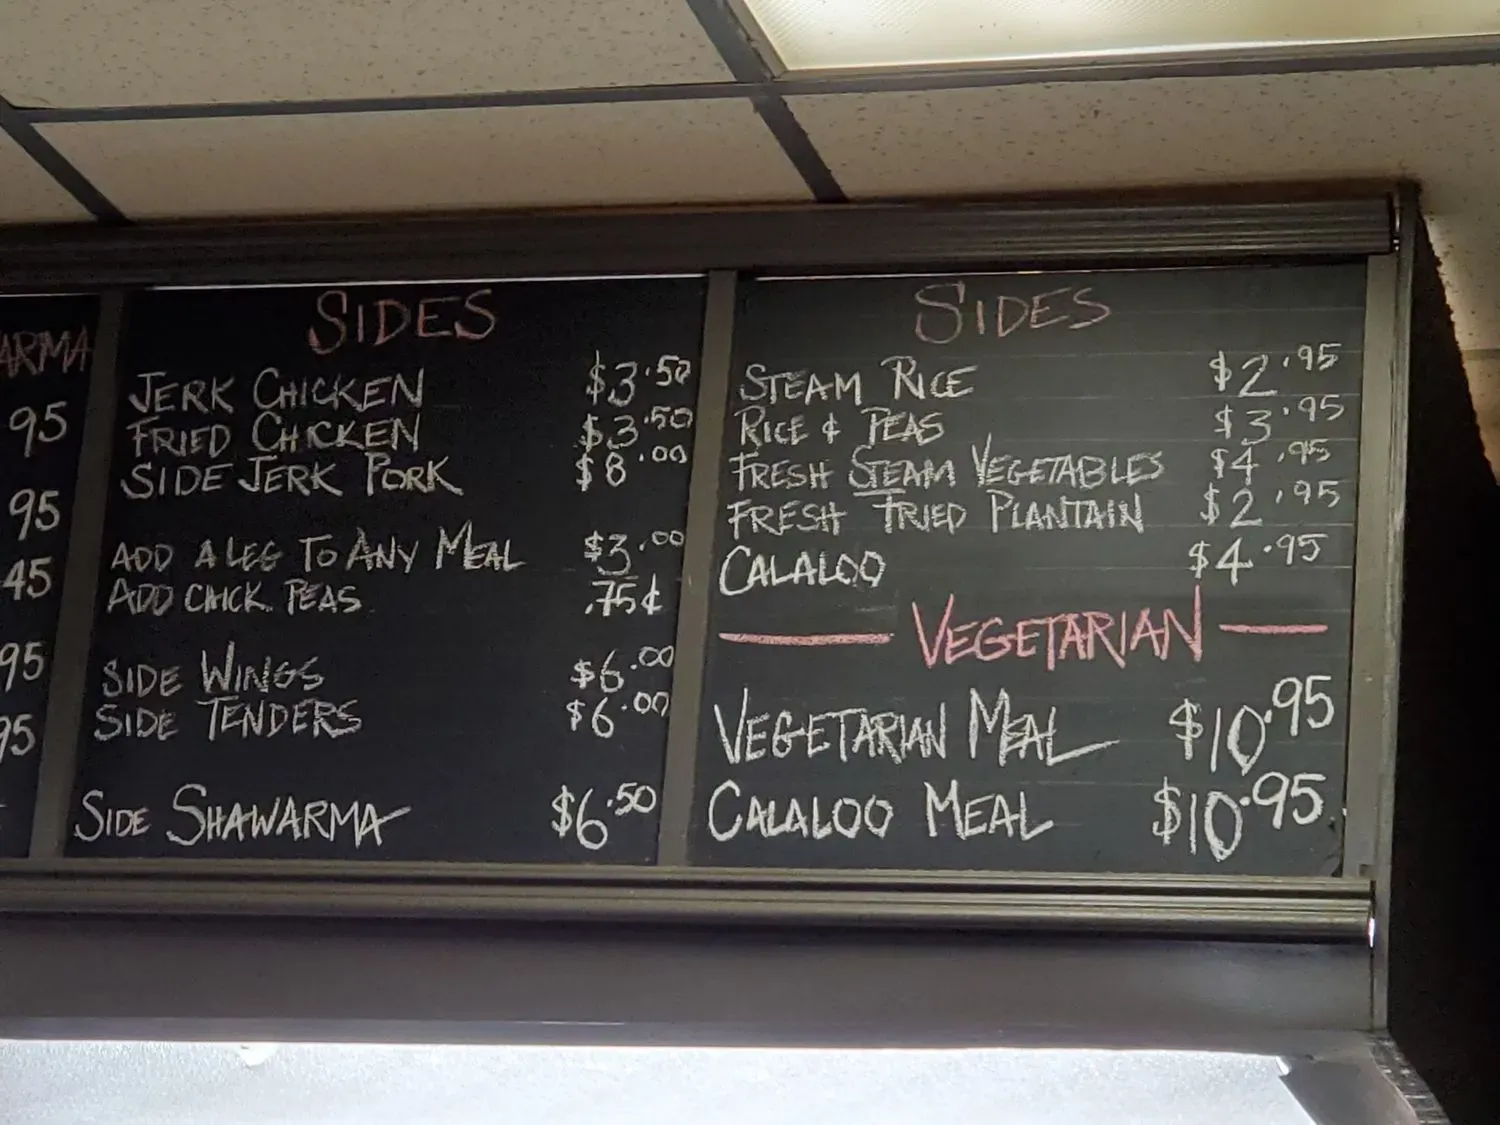 ARMA
95
95
45
95
95
SIDES
JERK CHICKEN $3.50
FRIED CHICKEN $3.50
SIDE JERK PORK $8.00
ADD A LEG TO ANY MEAL $3.00
ADD CHICK PEAS .75¢
SIDE WINGS $6.00
SIDE TENDERS $6.00
SIDE SHAWARMA $6.50
SIDES
STEAM RICE $2.95
RICE & PEAS $3.95
FRESH STEAM VEGETABLES $4.95
FRESH FRIED PLANTAIN $2.95
CALALOO $4.95
VEGETARIAN
VEGETARIAN MEAL $10.95
CALALOO MEAL $10.95